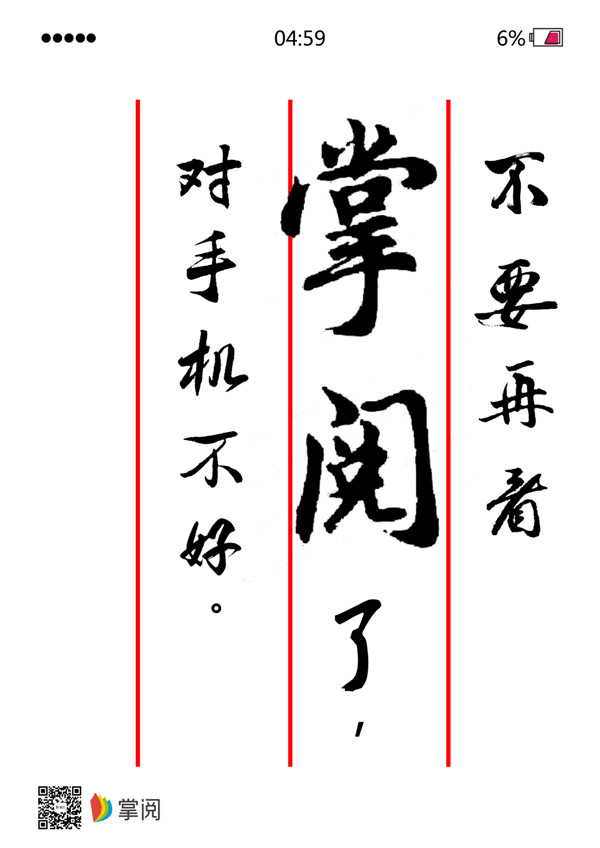 04:59
6%
不要再看
掌阅了，
对手机不好。
掌阅